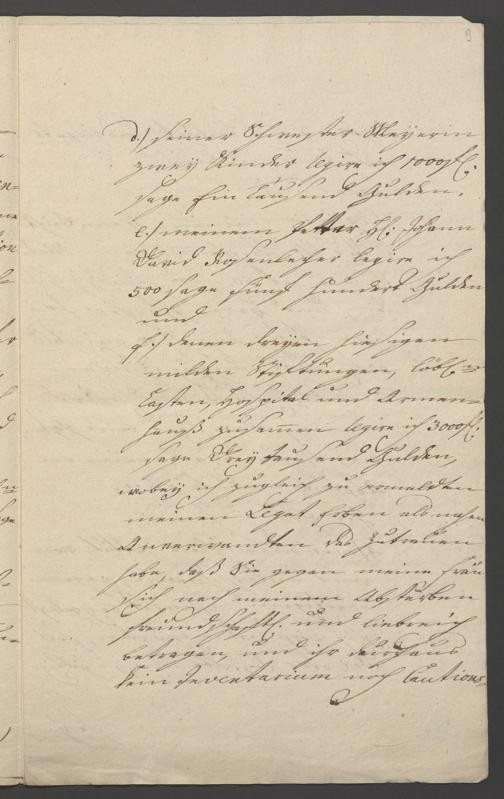 9
d.) seiner Schwester Meyerin
zwey Kinder legire ich 1000 fl.
sage Ein tausend Gulden.
e.) meinem Vetter H: Johann
David Rosenleher legire ich
500 sage fünf hundert Gulden
und
f.) denen dreyen hiesigen
milden Stiftungen, löbl.
Casten, Hospital und Armen-
hauß zusammen legire ich 3000 fl.
sage Drey tausend Gulden,
wobey ich zugleich zu ermeldten
meinen Legat Erben als nahen
Anverwandten das Zutrauen
habe, daß Sie gegen meine Frau
sich nach meinem Absterben
freundschaftl. und liebreich
betragen, und ihr durchaus
kein Inventarium noch Cautions-